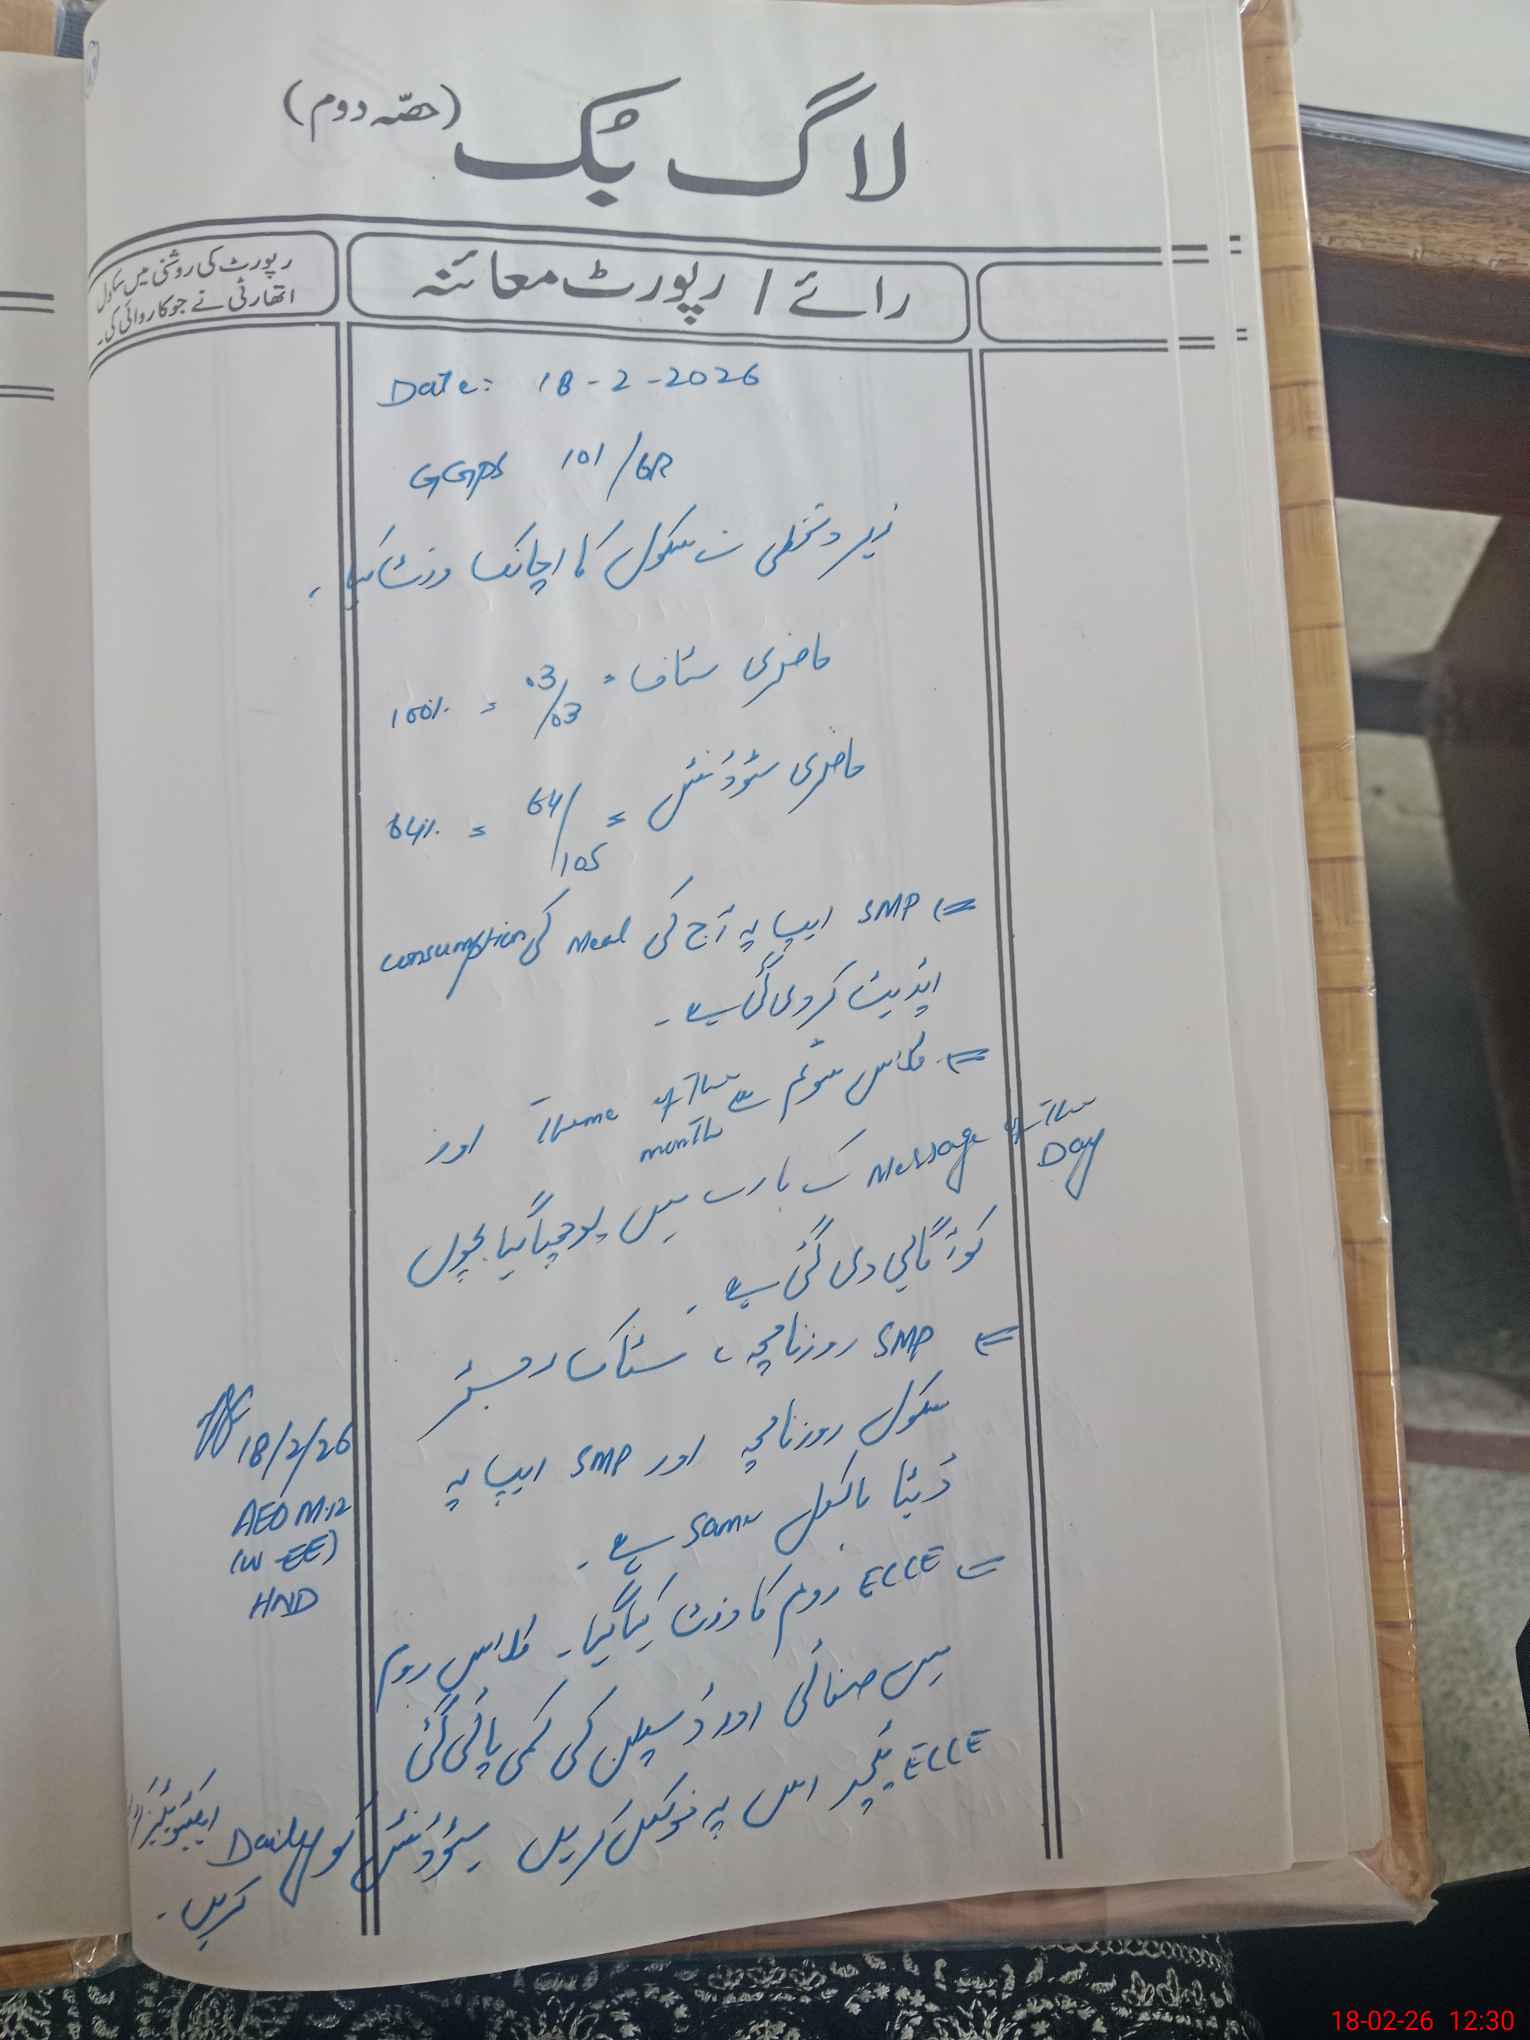 لاگ بک (حصّہ دوم)
رائے / رپورٹ معائنہ
رپورٹ کی روشنی میں سکول
اتھارٹی نے جو کاروائی کی۔
Date: 18-2-2026
GGPS 101/6R
زیر دستخطی نے سکول کا اچانک وزٹ کیا۔
حاضری سٹاف = 03/03 = 100%
حاضری سٹوڈنٹس = 64/105 = 64%
SMP ایپ پہ آج کی Meal کی consumption
اپڈیٹ کر دی گئی ہے۔
کلاس سوئم سے Theme of The month اور
Message of The Day کے بارے میں پوچھا گیا بچوں
کو آگاہی دی گئی ہے۔
SMP روزنامچہ، سٹاک رجسٹر
سکول روزنامچہ اور SMP ایپ پہ
ڈیٹا بالکل Same ہے۔
ECCE روم کا وزٹ کیا گیا۔ کلاس روم
میں صفائی اور ڈسپلن کی کمی پائی گئی
ECCE ٹیچر اس پہ فوکس کریں سٹوڈنٹس کو Daily
کریں۔
18/2/26
AEO M.12
(W-EE)
HND
18-02-26 12:30